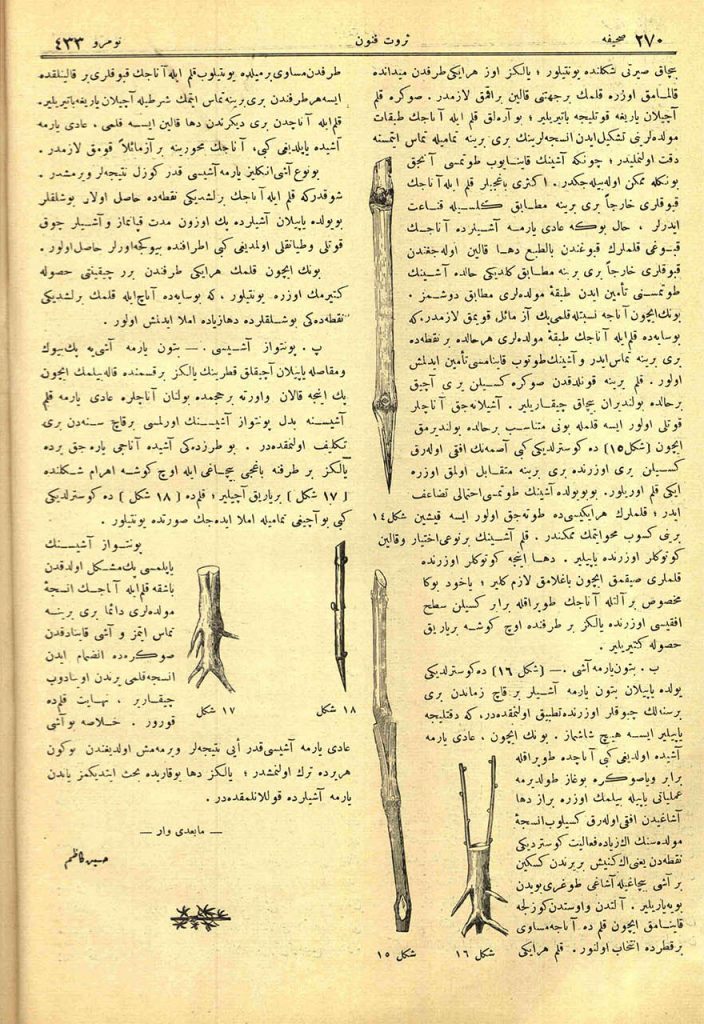 ٢٧٠ صحیفه
ثروت فنون
نومرو ٤٣٣
بیچاق صیرتی شكلنده یونتیلور ؛ یالكز اوز هرایكی طرفدن میدانده
قالمامق اوزره قلمك برجهتنی قالین براقمق لازمدر . صوكره قلم
آچیلان یاریغه قوتلیجه باتیریلیر ؛ بو آرەلق قلم ایله آناجك طبقات
مولدەلرینی تشكیل ایدن انسجەلرینك بری برینه تمامیله تماس ایتمسنه
دقت اولنملیدر ؛ چونكه آشینك قاینایوب طوتمسی آنجق
بونكله ممكن اوله‌بیله‌جكدر . اكثری باغجیلر قلم ایله آناجك
قبوقلری خارجاً بری برینه مطابق كلمسیله قناعت
ایدرلر ، حال بوكه عادی یارمه آشیلرده آناجك
قبوغی قلملرك قبوغندن بالطبع دها قالین اوله‌جغندن
قبوقلری خارجاً بری برینه مطابق كلدیكی حالده آشینك
طوتمسنی تأمین ایدن طبقهٔ مولدەلری مطابق دوشمز .
بونك ایچون آناجه نسبتله قلمی پك آز مائل قویمق لازمدر، كه
بوسایه‌ده قلم ایله آناجك طبقهٔ مولدەلری هرحالده بر نقطه‌ده
بری برینه تماس ایدر و آشینك طوتوب قاینامسی تأمین ایدلمش
اولور . قلم یرینه قونلدقدن صوكره كسیلن یری آچیق
برحالده بولندیران بیچاق چیقاریلیر . آشیلانه‌جق آناجلر
قوتلی اولور ایسه قلمله بونی متناسب برحالده بولندیرمق
ایچون (شكل ١٥) ده كوسترلدیكی كبی آصمه‌نك افقی اوله‌رق
كسیلن یری اوزرنده بری برینه متقابل اولمق اوزره
ایكی قلم اورولور. بویولده آشینك طوتمسی احتمالی تضاعف
ایدر ؛ قلملرك هرایكیسی‌ده طوته‌جق اولور ایسه قیشین
شكل ١٤
برینی كسوب محو ایتمك ممكندر . قلم آشینك برنوعی اختیار وقالین
كوتوكلر اوزرنده یاپیلیر . دها اینجه كوتوكلر اوزرنده
قلملری صیقمق ایچون باغلامق لازم كلیر ؛ یاخود بوكا
مخصوص برآلتله آناجك طوپراقله برابر كسیلن سطح
افقیسی اوزرنده یالكز بر طرفنده اوچ كوشه بریاریق
حصوله كتیریلیر .
ب . بتون یارمه آشی .— (شكل ١٦) ده كوسترلدیكی
یولده یاپیلان بتون یارمه آشیلر بر قاچ زماندن بری
برسنه‌لك چبوقلر اوزرنده تطبیق اولنمقده‌در، كه دقتلیجه
یاپیلیر ایسه هیچ شاشماز . بونك ایچون ، عادی یارمه
آشیده اولدیغی كبی آناجده طوپراقله
برابر ویاصوكره بوغاز طولدیرمه
عملیاتی یاپیله بیلمك اوزره براز دها
آشاغیدن افقی اوله‌رق كسیلوب انسجهٔ
مولده‌سنك اك زیاده فعالیت كوستردیكی
نقطه‌دن یعنی اك كنیش یرندن كسكین
بر آشی بیچاغیله آشاغی طوغری بویدن
بویه یاریلیر . آلتدن و اوستدن كوزلجه
قاینامق ایچون قلم ده آناجه مساوی
برقطرده انتخاب اولنور . قلم هرایكی
شكل ١٦
شكل ١٥
طرفدن مساوی برمیلده یونتیلوب قلم ایله آناجك قبوقلری بر قالینلقده
ایسه هر طرفندن بری برینه تماس ایتمك شرطیله آچیلان یاریغه باتیریلیر.
قلم ایله آناجدن بری دیكرندن دها قالین ایسه قلمی ، عادی یارمه
آشیده یاپلدیغی كبی، آناجك محورینه برآز مائلاً قومق لازمدر .
بونوع آشی انكلیز یارمه آشیسی قدر كوزل نتیجه‌لر ویرمشدر .
شوقدركه قلم ایله آناجك برلشدیكی نقطه‌ده حاصل اولان بوشلقلر
بویولده یاپیلان آشیلرده پك اوزون مدت قپانماز و آشیلر چوق
قوتلی وطیانقلی اولمدیغی كبی اطرافنده بیوكجه اورلر حاصل اولور .
بونك ایچون قلمك هرایكی طرفندن برر چیقینتی حصوله
كتیرمك اوزره یونتیلور ، كه بوسایه‌ده آناج ایله قلمك برلشدیكی
نقطه‌ده‌كی بوشلقلرده دهازیاده املا ایدلمش اولور .
پ . پونتواز آشیسی .— بتون یارمه آشی‌یه پك بیوك
ومفاصله یاپیلان آچیقلق قطرینك یالكز بر قسمنده قاله‌بیلمك ایچون
پك اینجه قالان واورته برحجمده بولنان آناجلره عادی یارمه قلم
آشیسنه بدل پونتواز آشیسنك اورلمسی برقاچ سنه‌دن بری
تكلیف اولنمقده‌در . بو طرزده‌كی آشیده آناجی یاره جق یرده
یالكز بر طرفنه باغچی بیچاغی ایله اوچ كوشه اهرام شكلنده
( ١٧ شكل ) بریاریق آچیلیر ؛ قلم‌ده ( ١٨ شكل ) ده كوسترلدیكی
كبی بو آچیغی تمامیله املا ایده‌جك صورتده یونتیلور .
پونتواز آشیسنك
یاپلمسی پك مشكل اولدقدن
باشقه قلم ایله آناجك انسجهٔ
مولده‌لری دائما بری برینه
تماس ایتمز و آشی قاینادقدن
صوكره‌ده انضمام ایدن
انسجه قلمی یرندن اوینادوب
چیقاریر ، نهایت قلم‌ده
قورور . خلاصه بو آشی
شكل ١٧
شكل ١٨
عادی یارمه آشیسی قدر أیی نتیجه‌لر ویرمه‌مش اولدیغندن بوكون
هریرده ترك اولنمشدر ؛ یالكز دها یوقاریده بحث ایتدیكمز یاندن
یارمه آشیلرده قوللانلمقده‌در.
— مابعدی وار —
حسین كاظم